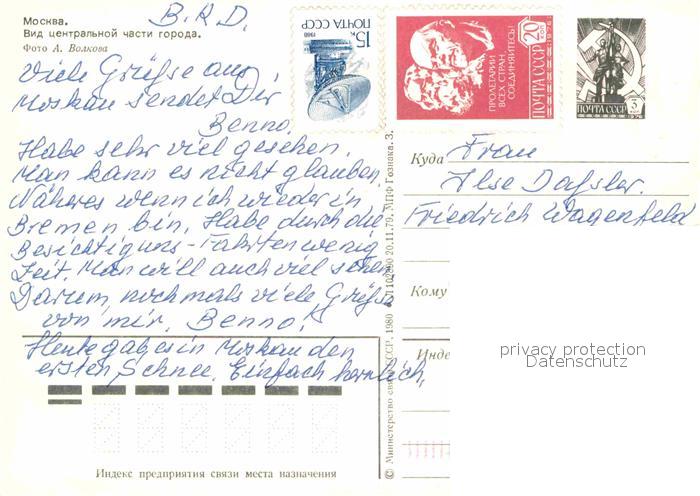 B.R.D.
Москва.
Вид центральной части города.
Фото А. Волкова
Viele Grüße aus
Moskau sendet Dir
Benno.
Habe sehr viel gesehen.
Man kann es nicht glauben.
Näheres wenn ich wieder in
Bremen bin. Habe durch die
Besichtigungs-Fahrten wenig
Zeit. Man will auch viel sehen
Darum, nochmals viele Grüße
von mir. Benno!
Heute gab es in Moskau den
ersten Schnee. Einfach herrlich.
Индекс предприятия связи места назначения
© Министерство связи СССР, 1980 20.11.79. МПФ Гознака. З.
15 к
ПОЧТА СССР
1988
ПРОЛЕТАРИИ
ВСЕХ СТРАН
СОЕДИНЯЙТЕСЬ!
ПОЧТА СССР
20 коп
1976
ПОЧТА СССР
3
1976
Куда
Frau
Ilse Daßler.
Friedrich Wagenfeld
Кому
Инде
privacy protection
Datenschutz